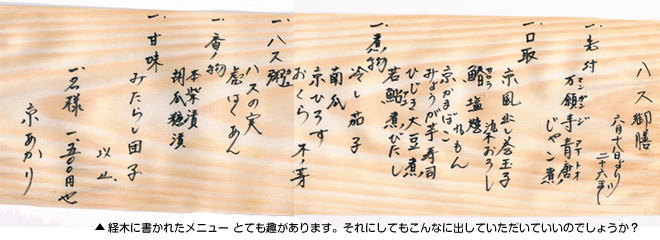 ハス御膳
六月十八日より
二十六日
一、先付
マンガンジ アオトオ
万願寺青唐
じゃこ煮
一、口取
京風出し巻玉子
染おろし
塩焼
れもん
京かまぼこ
みょうが芋寿司
ひじき大豆煮
若鮎煮びたし
一、煮物
冷し茄子
南瓜
京ひろうす
おくら 木ノ芽
一、ハス粥
ハスの実
一、香ノ物
柴漬
胡瓜糠漬
一、甘味
みたらし団子
以上
一名様 一五〇〇円也
京あかり
▲経木に書かれたメニュー とても趣があります。それにしてもこんなに出していただいていいのでしょうか？